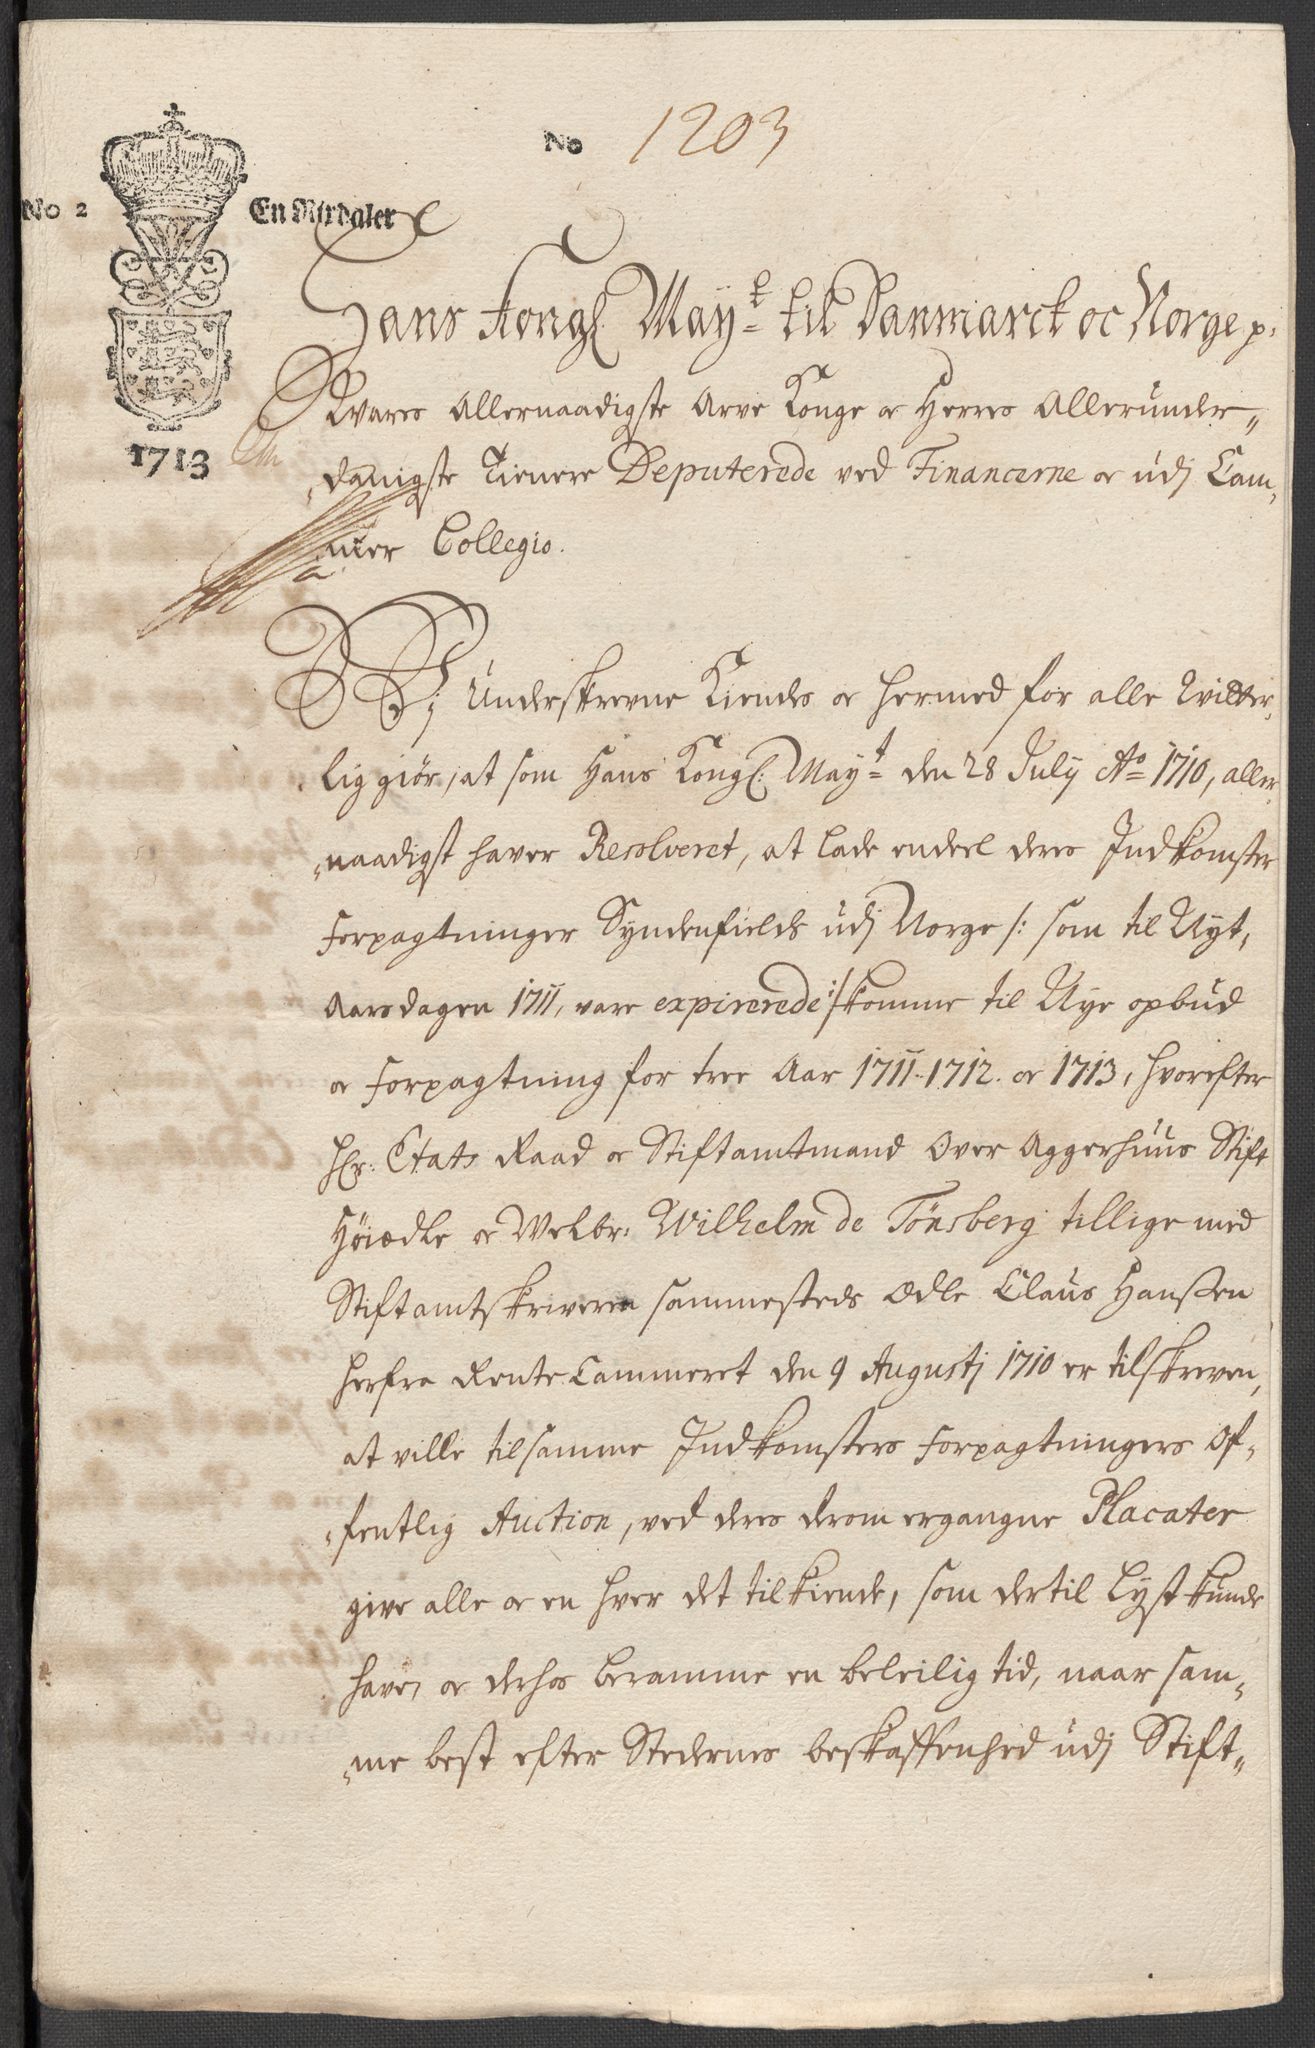 No 1203
No 2 En Rixdaler
1713
Hans Kongl. Mayt til Danmarck oc Norge p.
Wores Allernaadigste Arve Konge oc Herres Allerunder„
„danigste Tienere Deputerede ved Financerne oc udj Cam„
mer Collegio.
Wj Underskrevne Kiendes oc hermed for alle Witter„
lig giør, at som Hans Kongl: Mayt den 28 July Ao 1710, aller„
„naadigst haver Resolveret, at lade endeel deres Indkomster
Forpagtninger Syndenfields udj Norge /: som til Nyt,
Aarsdagen 1711, vare expirerede :/ komme til Nye opbud
oc Forpagtning for tree Aar 1711. 1712. oc 1713, hvorefter
Hr: Etats Raad oc Stiftamtmand Over Aggerhuus Stift
Høiædle oc Welbr: Wilhelm de Tønsberg tillige med
Stiftamtskriveren sammesteds Ædle Claus Hanssen
herfra Rente Cammeret den 9 Augustj 1710 er tilskreven,
at ville tilsamme Indkomsters Forpagtningers Of„
„fentlig Auction, ved deres derom ergangne Placater
give alle oc en hver det tilkiende, som dertil Lyst kunde
have, oc derhos beramme en beleilig tid, naar sam„
„me best efter Stedernes beskaffenhed udj Stift„